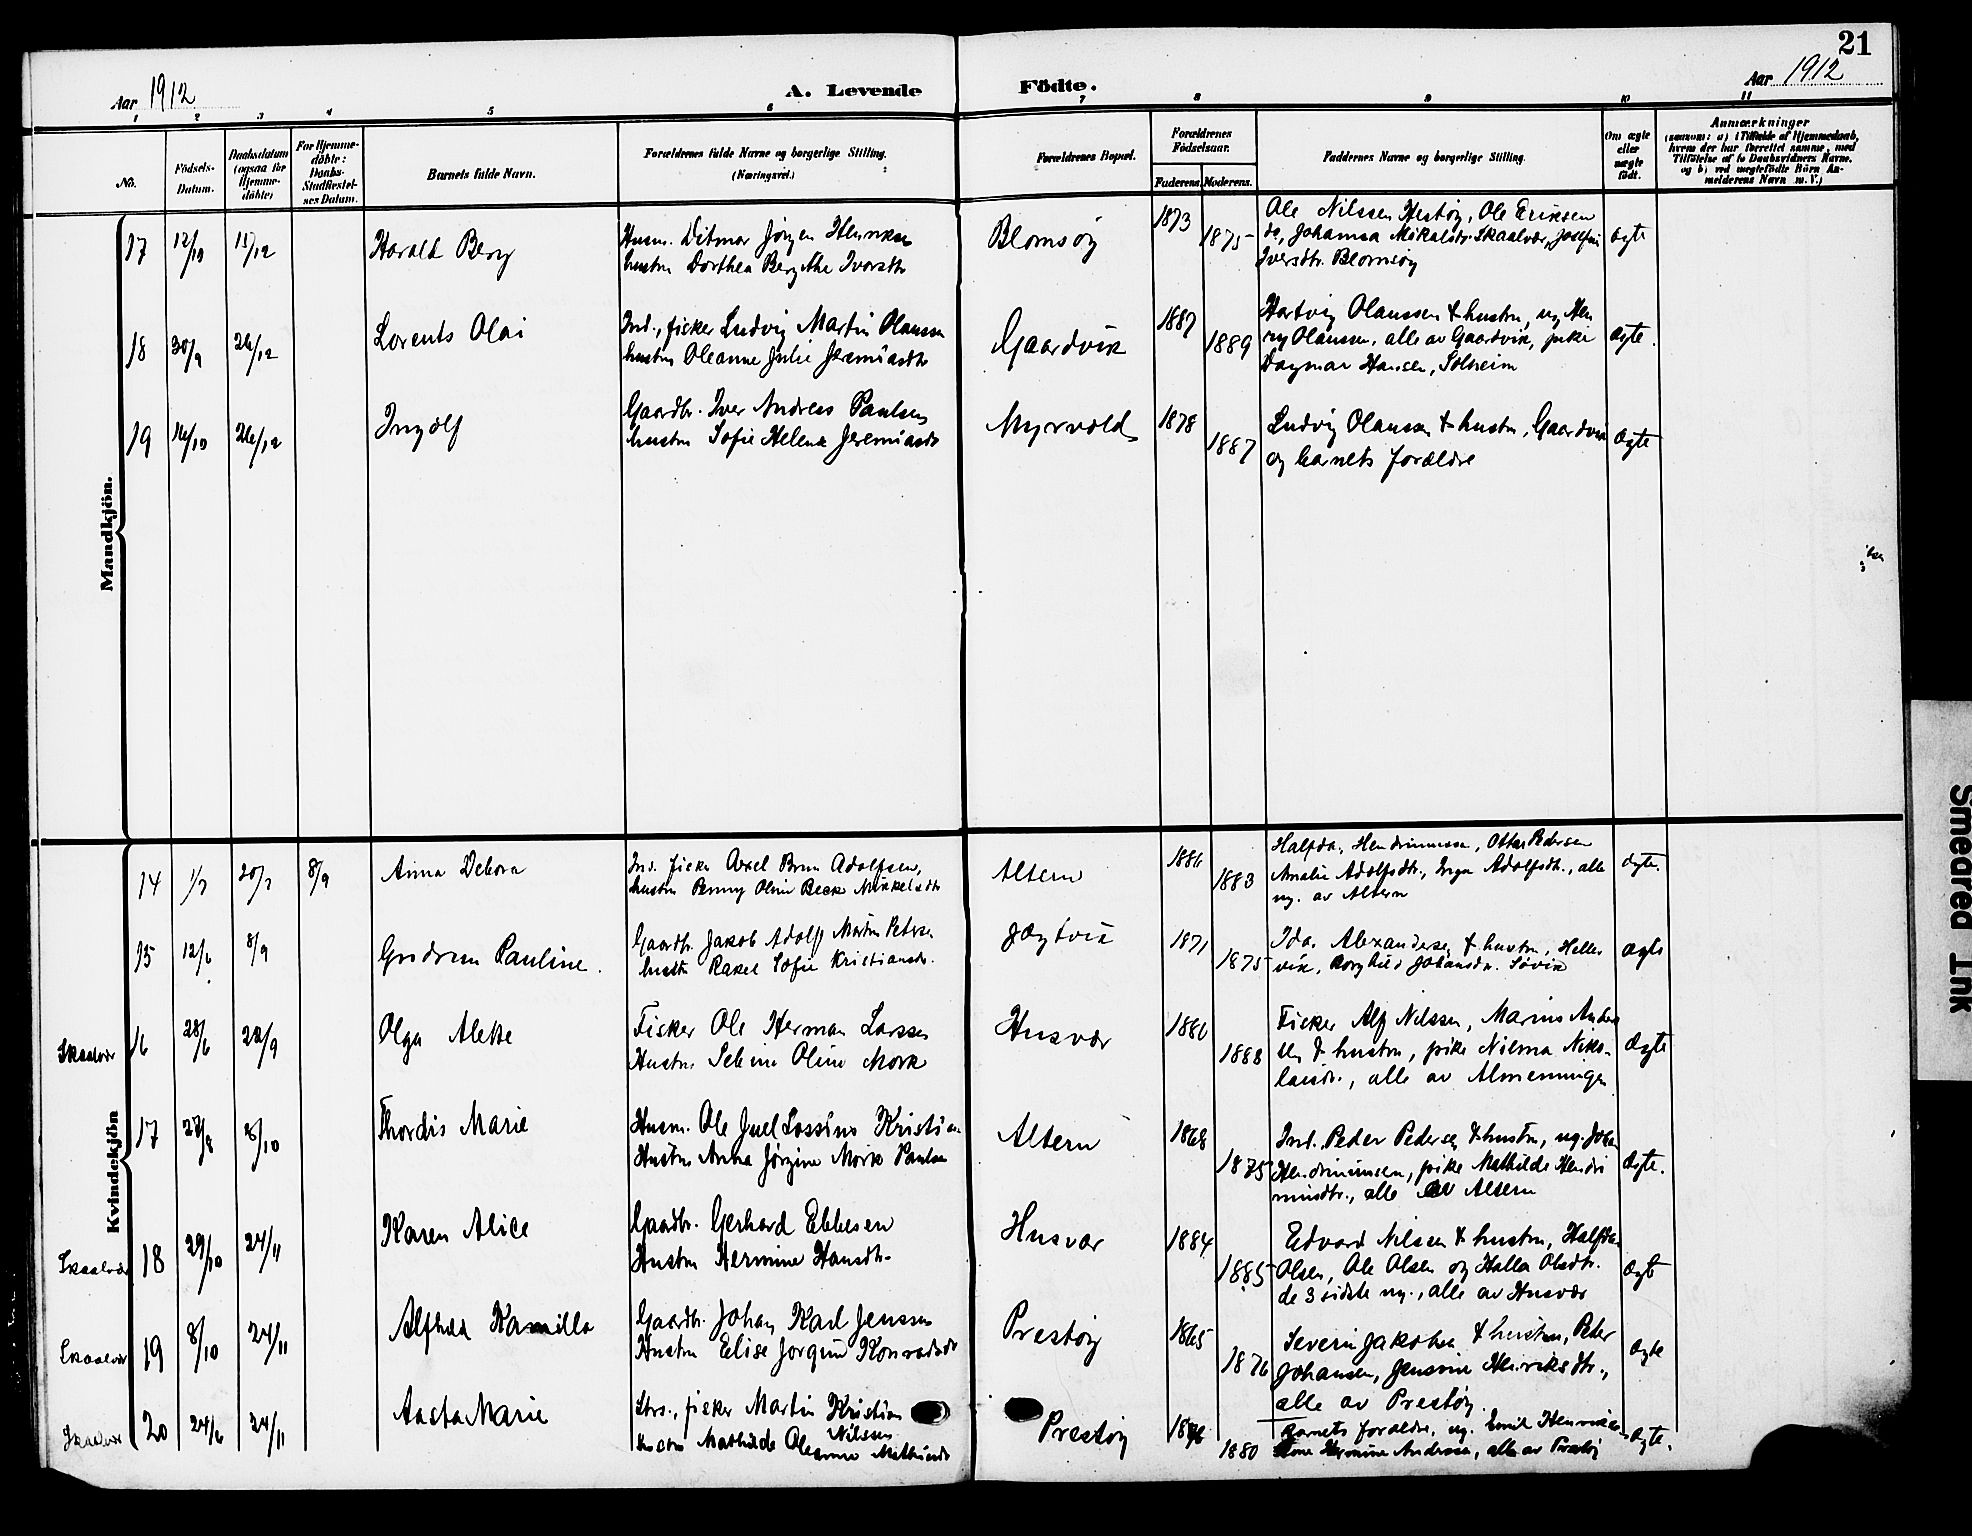 21
Aar 1912
A. Levende Födte.
Aar 1912
1 2 3 4 5 6 7 8 9 10 11
No.
Födsels-
Datum.
Daabsdatum
(ogsaa for
Hjemme-
döbte)
For Hjemme-
döbte:
Daabs-
Stadfæstel-
ses Datum.
Barnets fulde Navn.
Forældrenes fulde Navne og borgerlige Stilling.
(Næringsvei.)
Forældrenes Bopæl.
Forældrenes
Födselsaar.
Faderens. Moderens.
Faddernes Navne og borgerlige Stilling.
Om ægte
eller
uægte
födt.
Anmærkninger
(saasom: a) i Tilfælde af Hjemmedaab,
hvem der har forrettet samme, med
Tilföielse af to Daabsvidners Navne,
og b) ved uægtefödte Börn An-
melderens Navn m. V.)
Mandkjön.
17 12/10 15/12 Harald Berg
Husm. Ditmar Jörgen
hustru Dorthea Iversdtr
Blomsöy 1873 1875
Ole Nilssen Hestöy, Ole Eriksen
do, Johanna Skaalvær, Josefine
Iversdtr. Blomsöy
ægte
18 30/9 26/12 Lorents Olai
Ind., fisker Ludvig Martin Olaussen
hustru Oleanna Julie Jeremiasdtr
Gaardvik 1887 1889
Hartvig Olaussen & hustru, ug. Hen
ry Olaussen, alle av Gaardvik, pike
Dagmar Hansen, Solheim
ægte.
19 16/10 26/12 Ingolf
Gaardbr. Iver Andreas Paulsen
hustru Sofie Helena Jeremiasdtr
Myrvold 1878 1887
Ludvig Olaussen & hustru, Gaardvik
og barnets forældre
ægte
Kvindekjön
14 1/7 20/7 8/9 Anna Debora
Ind. fisker Axel Brun Adolfsen,
hustru Penny Oline Beck Mikkelsdtr
Altern 1886 1883
Halfdan Hendriksen, Otter Pedersen
Amalie Adolfsdtr., Inga Adolfsdtr., alle
ug. av Altern
ægte.
15 12/6 8/9 Gudrun Pauline.
Gaardbr. Jakob Adolf Martin Peterse
hustru Rakel Sofie Kristiansdr.
Jægtvik 1871 1875
Ida Alexandersen & hustru, Heller
vik, Borghild Johansdr. Sövik
ægte
Skaalvær 16 28/6 22/9 Olga Alette
Fisker Ole Herman Larssen
Hustru Oline Mork
Husvær 1886 1888
Fisker Alf Nilssen, Marius Anders
sen & hustru, pike Nilma Niko-
laisdtr., alle av Almenningen
ægte
17 27/8 8/10 Thordis Marie
Husm. Ole Juel Kristian
Hustru Anna Jörgine Mork Paulsen
Altern 1868 1875
Ind. Peder Pedersen & hustru, ug. Johan
pike Mathilde Hendri
alle av Altern
ægte.
Skaalvær 18 29/10 24/11 Karen Alice
Gaardbr. Gerhard Ebbesen
Hustru Hermine Hansdtr.
Husvær 1884 1885
Edvard Nilsen & hustru, Halfdan
Olsen, Ole Olsen og Halla Olsdtr.
de 3 sidste ug., alle av Husvær
ægte
Skaalvær 19 8/10 24/11 Alfhild Kamilla
Gaardbr. Johan Karl Jenssen
Hustru Elise Jorgine Konradsdtr
Prestöy 1865 1876
Severin Jakobsen & hustru, Peter
Johansen, Jensine Henriksdtr.,
alle av Prestöy.
ægte
Skaalvær 20 24/6 24/11 Aasta Marie
fisker Martin Kristian
Nilssen
hustru Mathilde Oleanna
Prestöy 1880
Barnets forældre, ug. Emil Henriksen
Hermine Andersen, alle av Prestöy
ægte.
Smeared Ink